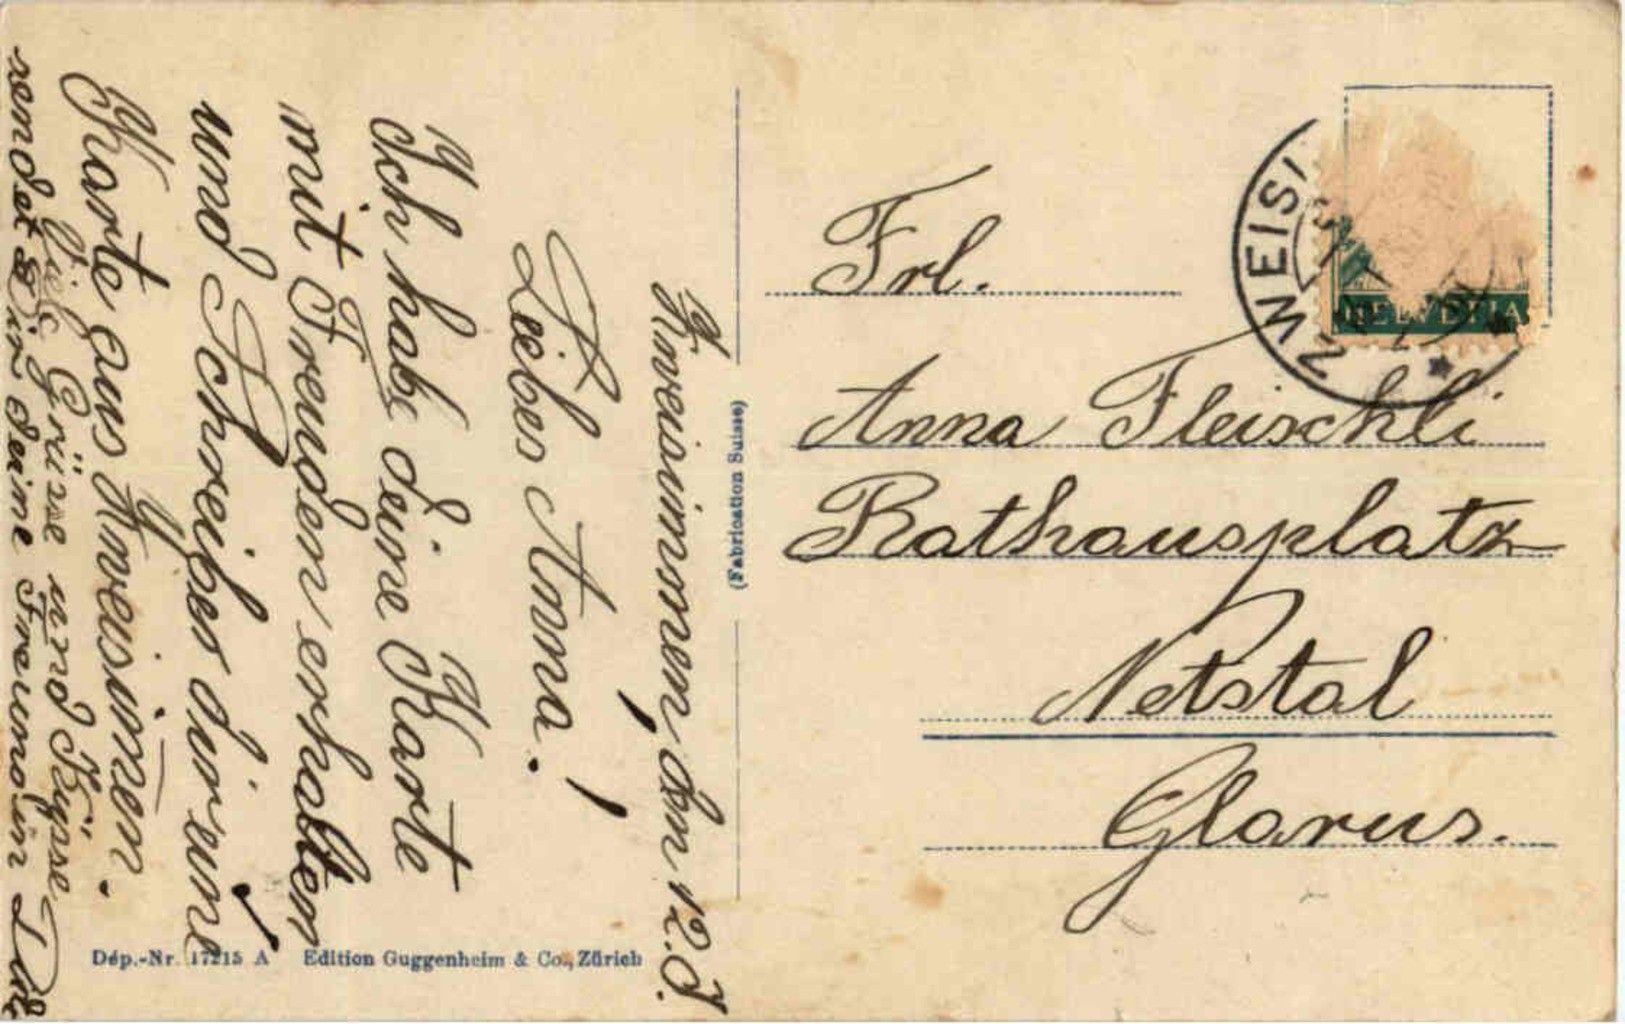 Zweisimmen, den 12. J.
Liebes Anna!
Ich habe deine Karte
mit Freuden erhalten
und Schreibes dir eine
Karte aus Zweisimen.
Viele Grüsse und Küsse
sendet Dir deine Freundin
Frl.
Anna Fleischli
Rathausplatz
Netstal
Glarus.
ZWEISI
HELVETIA
(Fabrication Suisse)
Dép.-Nr. 17215 A Edition Guggenheim & Co., Zürich